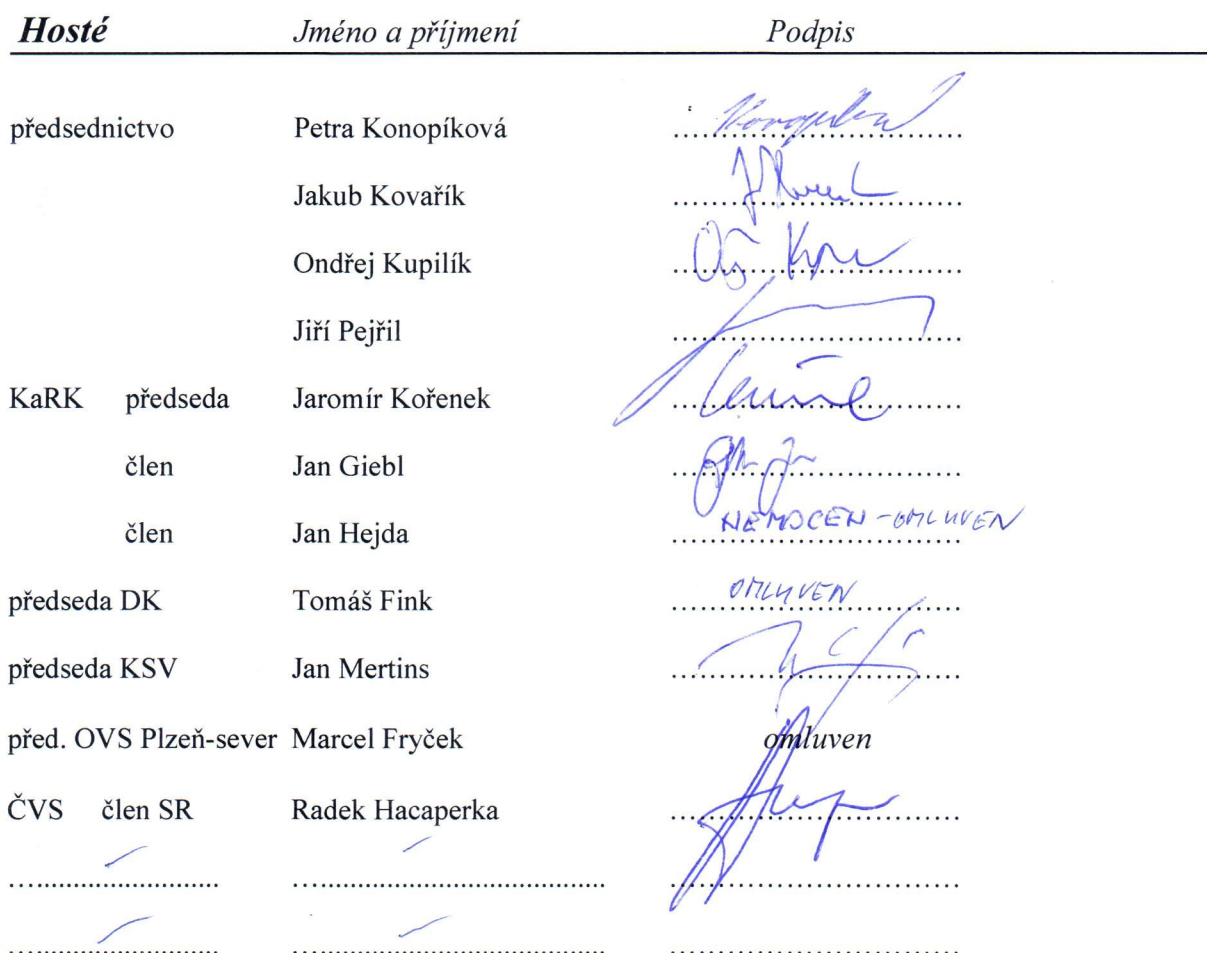 Hosté Jméno a příjmení Podpis
předsednictvo Petra Konopíková
Jakub Kovařík
Ondřej Kupilík
Jiří Pejřil
KaRK předseda Jaromír Kořenek
člen Jan Giebl
člen Jan Hejda NEMOCEN - OMLUVEN
předseda DK Tomáš Fink OMLUVEN
předseda KSV Jan Mertins
před. OVS Plzeň-sever Marcel Fryček omluven
ČVS člen SR Radek Hacaperka